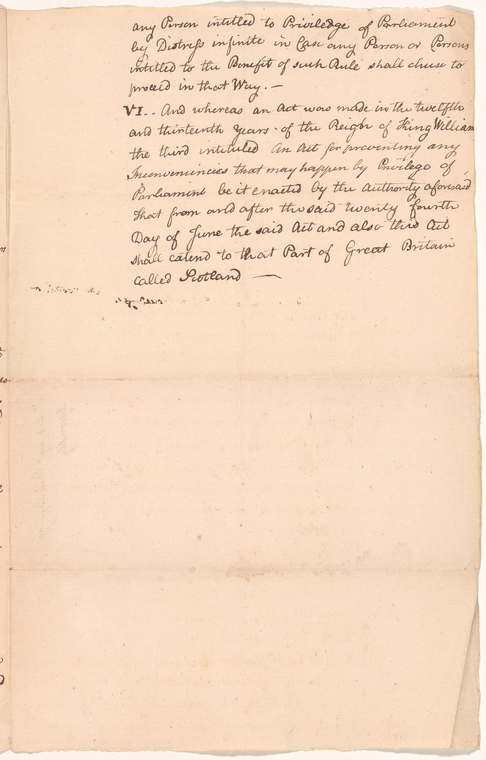 any Person intitled to Priviledge of Parliament
by Distress infinite in Case any Person or Persons
intitled to the Benefit of such Rule shall chuse to
proceed in that Way. —
VI. . And whereas an Act was made in the twelfth
and thirteenth Years of the Reign of King William
the third intituled An Act for preventing any
Inconveniencies that may happen by Privilege of
Parliament be it enacted by the authority aforesaid
that from and after the said twenty fourth
Day of June the said Act and also this Act
shall extend to that Part of Great Britain
called Scotland —